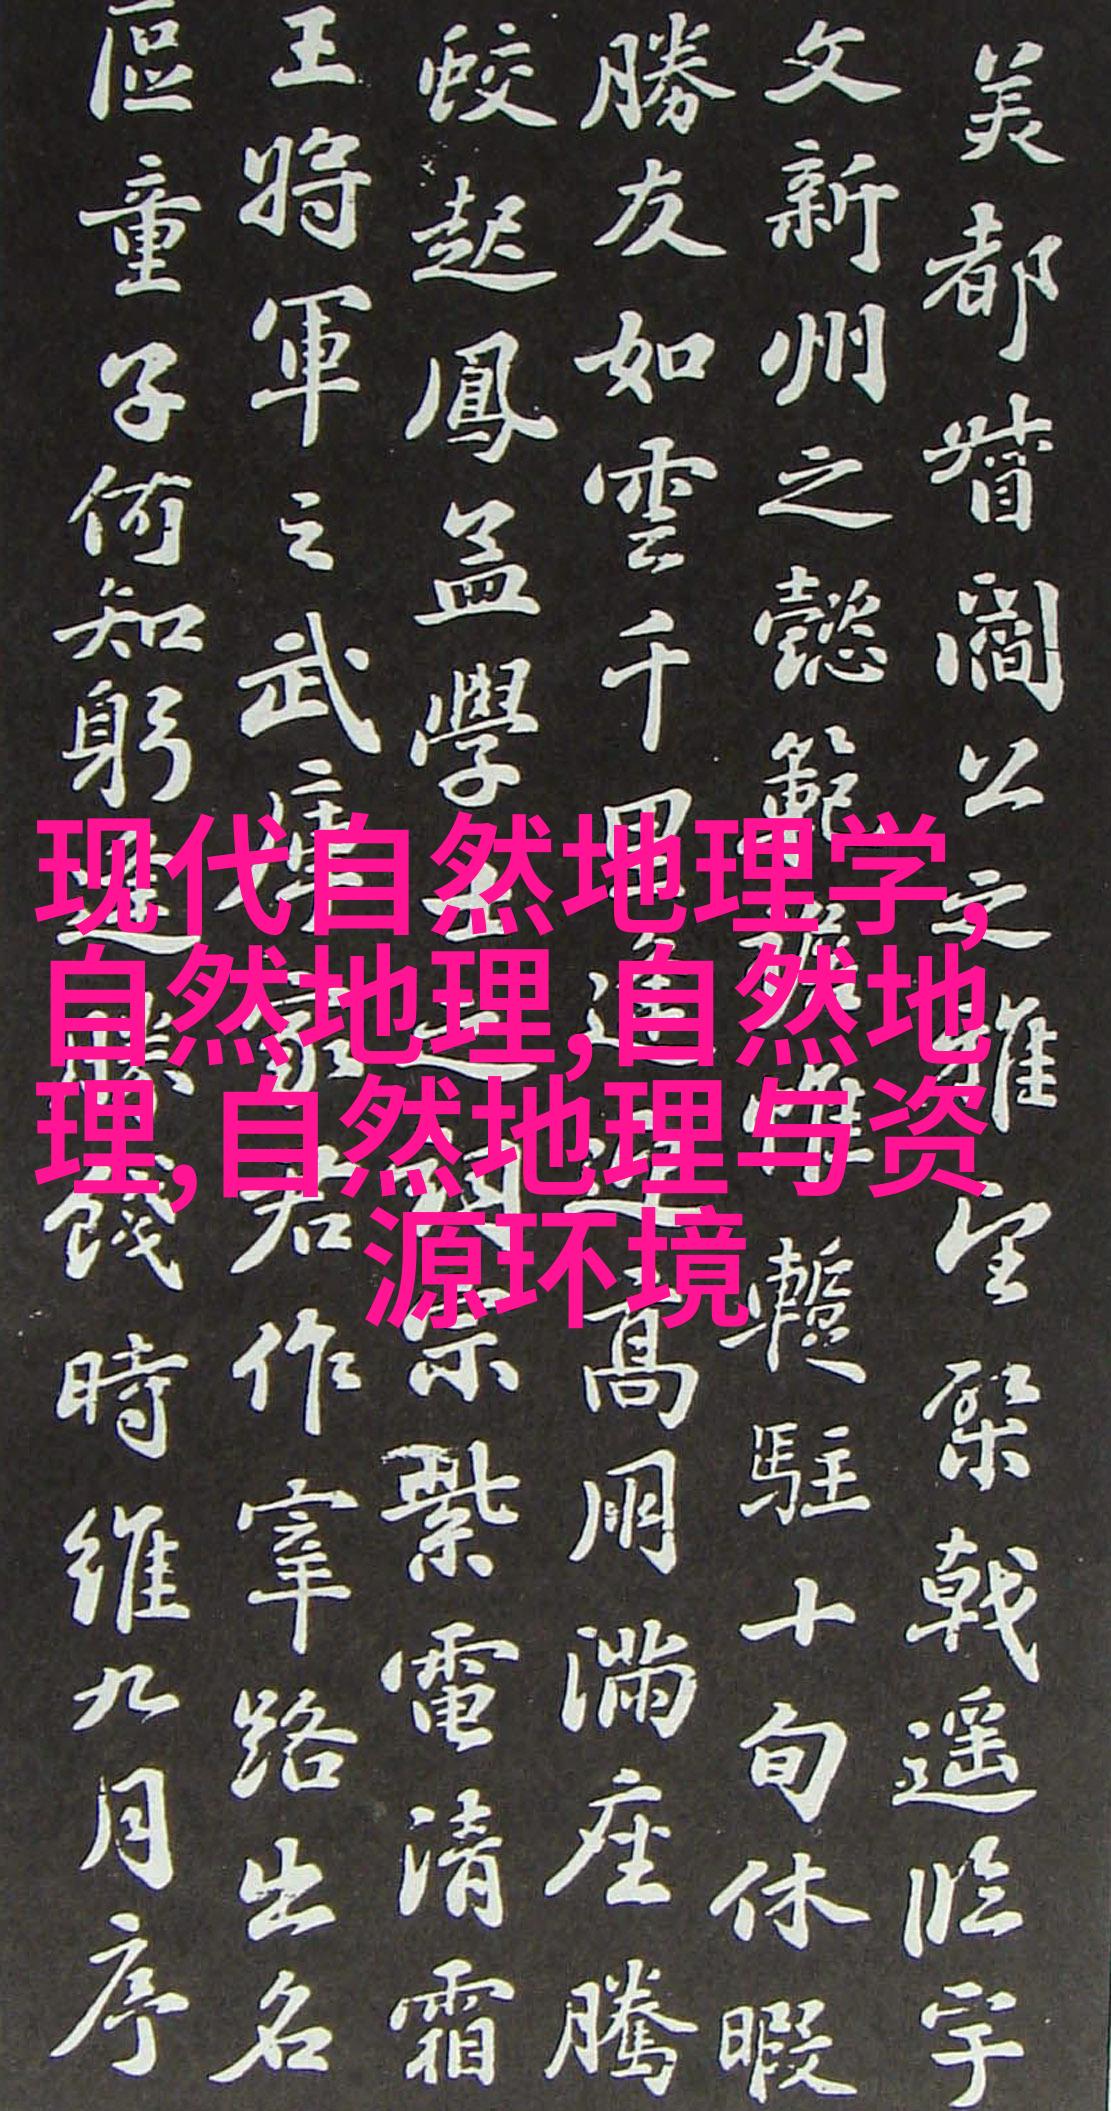 美都督閻公之雅望棨戟遥臨宇
文新州之懿範襜帷暫駐十旬休暇
勝友如雲千里逢迎高朋滿座騰
蛟起鳳孟學士之詞宗紫電清霜
王將軍之武庫家君作宰路出名
區童子何知躬逢勝餞時維九月序
现代自然地理学,
自然地理,自然地
理,自然地理与资
源环境